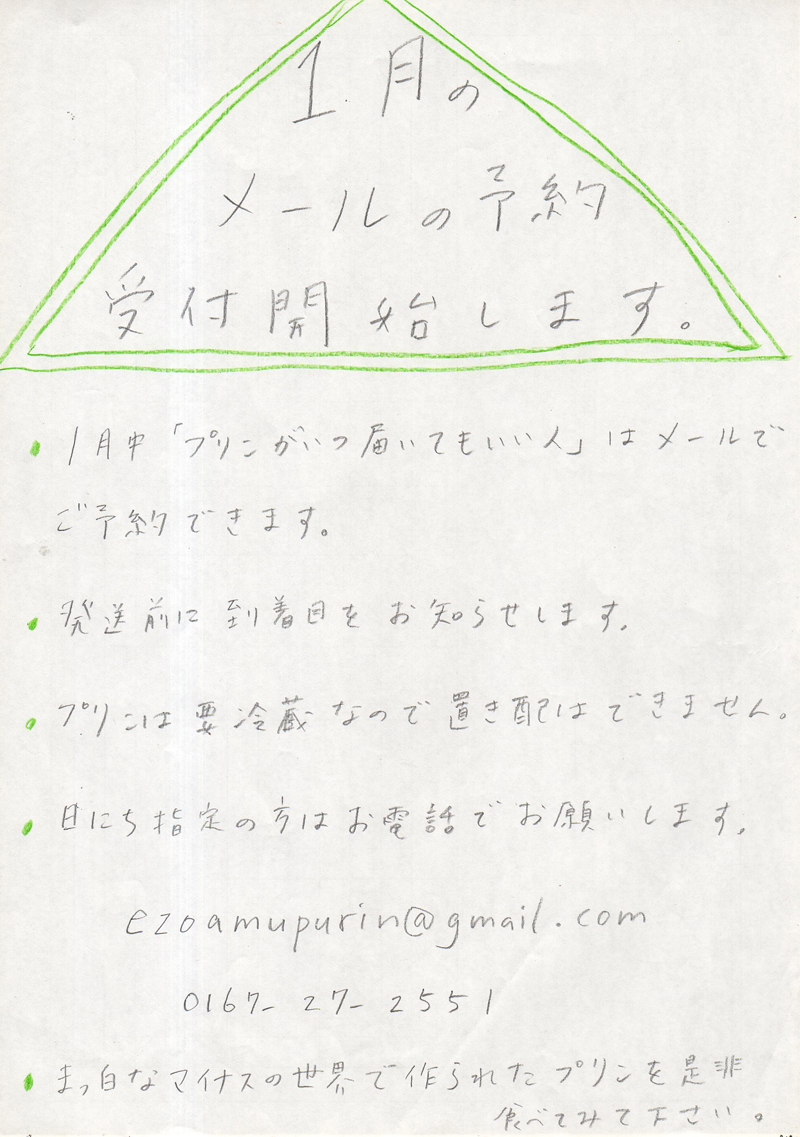 1月の
メールの予約
受付開始します。
・1月中「プリンがいつ届いてもいい人」はメールで
ご予約できます。
・発送前に到着日をお知らせします。
・プリンは要冷蔵なので置き配はできません。
・日にち指定の方はお電話でお願いします。
ezoamupurin@gmail.com
0167-27-2551
・まっ白なマイナスの世界で作られたプリンを是非
食べてみて下さい。